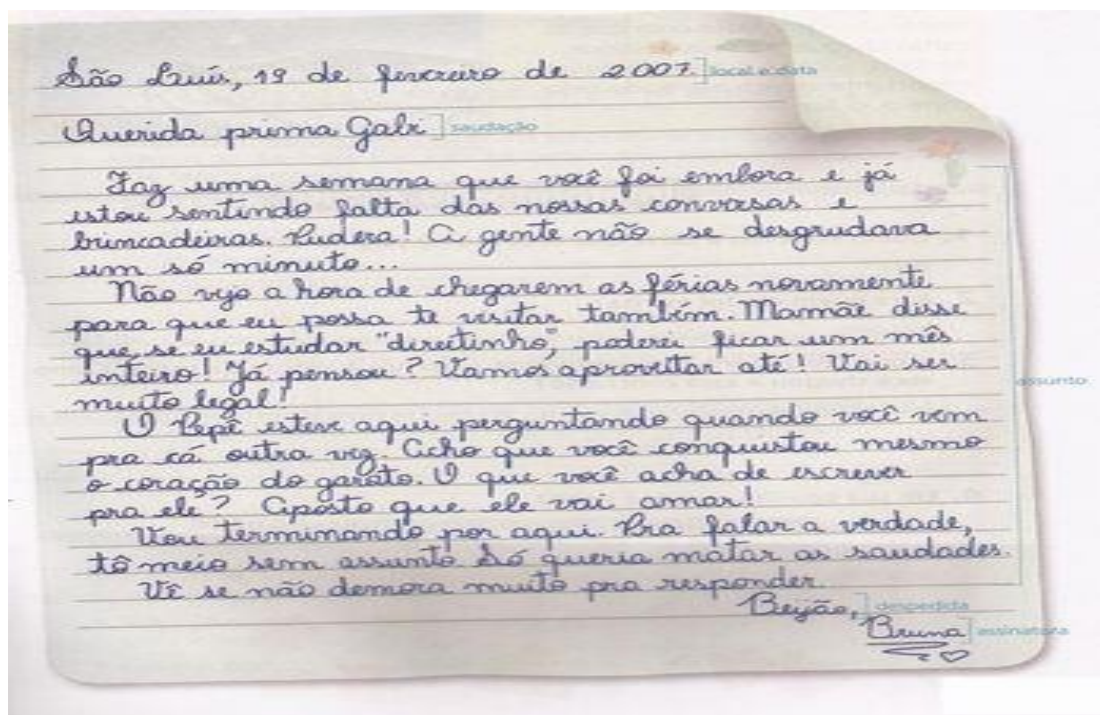 São Luís, 19 de fevereiro de 2007. local e data
Querida prima Gabi saudação
Faz uma semana que você foi embora e já
estou sentindo falta das nossas conversas e
brincadeiras. Pudera! A gente não se desgrudava
um só minuto...
Não vejo a hora de chegarem as férias novamente
para que eu possa te visitar também. Mamãe disse
que, se eu estudar "direitinho", poderei ficar um mês
inteiro! Já pensou? Vamos aproveitar até! Vai ser
muito legal!
assunto
O Pepê esteve aqui perguntando quando você vem
pra cá outra vez. Acho que você conquistou mesmo
o coração do garoto. O que você acha de escrever
pra ele? Aposto que ele vai amar!
Vou terminando por aqui. Pra falar a verdade,
tô meio sem assunto. Só queria matar as saudades.
Vê se não demora muito pra responder.
Beijão, despedida
Bruna assinatura